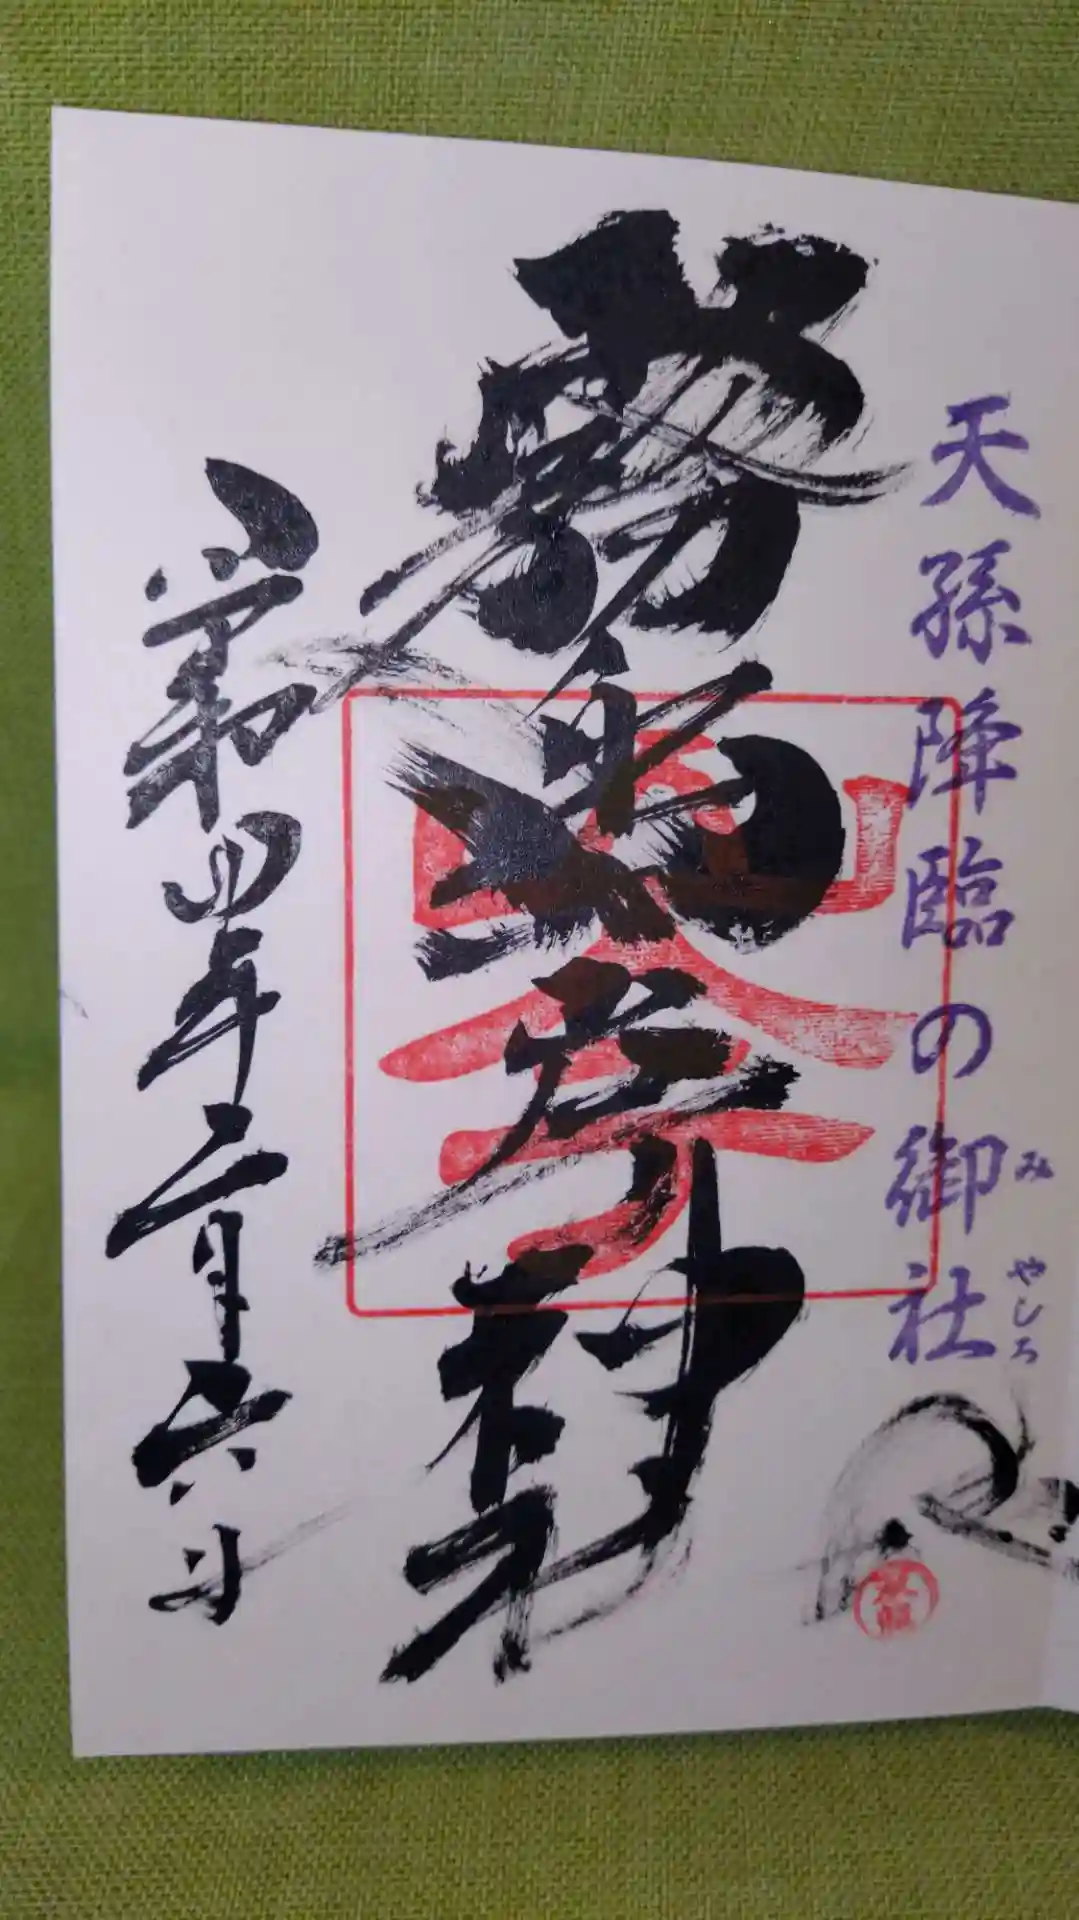 天孫降臨の御社
みやしろ
霧島岑神社
令和四年二月六日